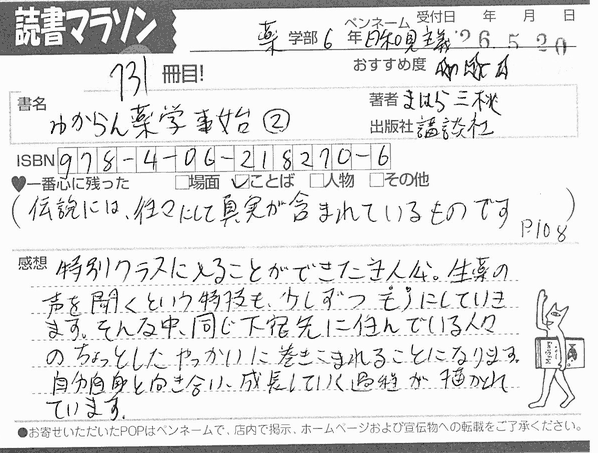 読書マラソン
薬 学部 6 年 ペンネーム 日和見主義 受付日 '26.5.20 年 月 日
731 冊目!
おすすめ度
書名 わからん薬学事始②
著者 まはら三桃
出版社 講談社
ISBN 978-4-06-218270-6
♥一番心に残った □場面 ☑ことば □人物 □その他
(伝説には、往々にして真実が含まれているものです P108)
感想 特別クラスに入ることができた主人公。生薬の
声を聞くという特技も、少しずつものにしていき
ます。そんな中、同じ下宿先に住んでいる人々
のちょっとしたやっかいに巻きこまれることになります。
自分自身と向き合い、成長していく過程が描かれ
ています。
●お寄せいただいたPOPはペンネームで、店内で掲示、ホームページおよび宣伝物への転載をご了承ください。